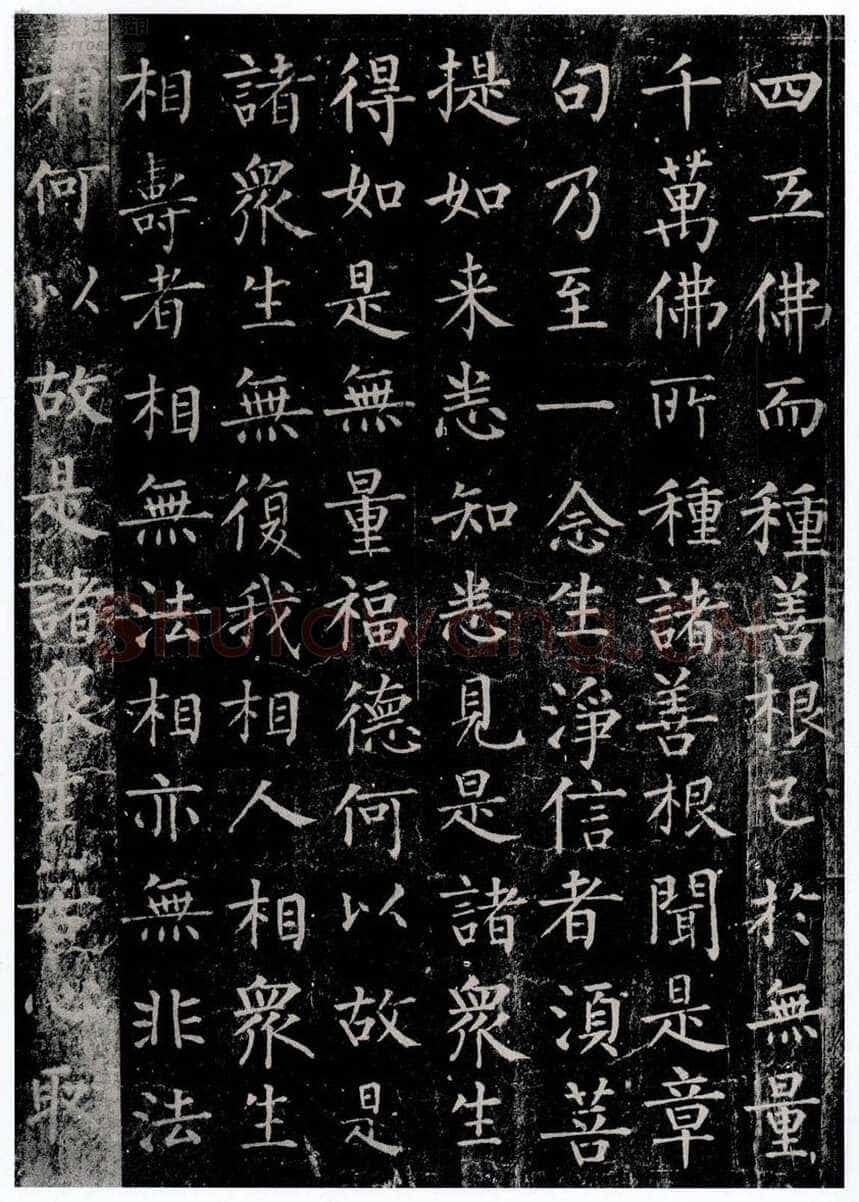 四五佛而種善根已於無量
千萬佛所種諸善根聞是章
句乃至一念生淨信者須菩
提如来悉知悉見是諸衆生
得如是無量福德何以故是
諸衆生無復我相人相衆生
相壽者相無法相亦無非法
相何以故是諸衆生若心取
Shufawang.CN